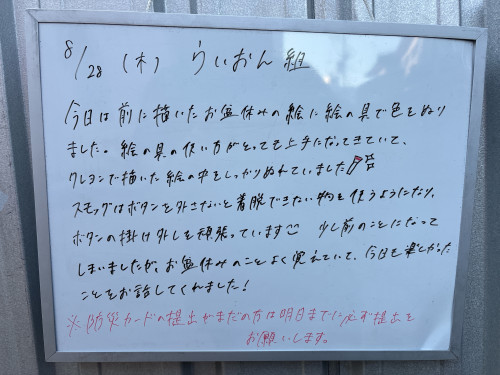 8/28 (木) らいおん組
今日は前に描いたお盆休みの絵に絵の具で色をぬり
ました。絵の具の使い方がとっても上手になってきていて、
クレヨンで描いた絵の中をしっかりぬれていました
スモッグはボタンを外さないと着脱できない物を使うようになり、
ボタンの掛け外しを頑張っています 少し前のことになって
しまいましたが、お盆休みのことよく覚えていて、今日も楽しかった
ことをお話してくれました!
※防災カードの提出がまだの方は明日までに必ず提出を
お願いします。